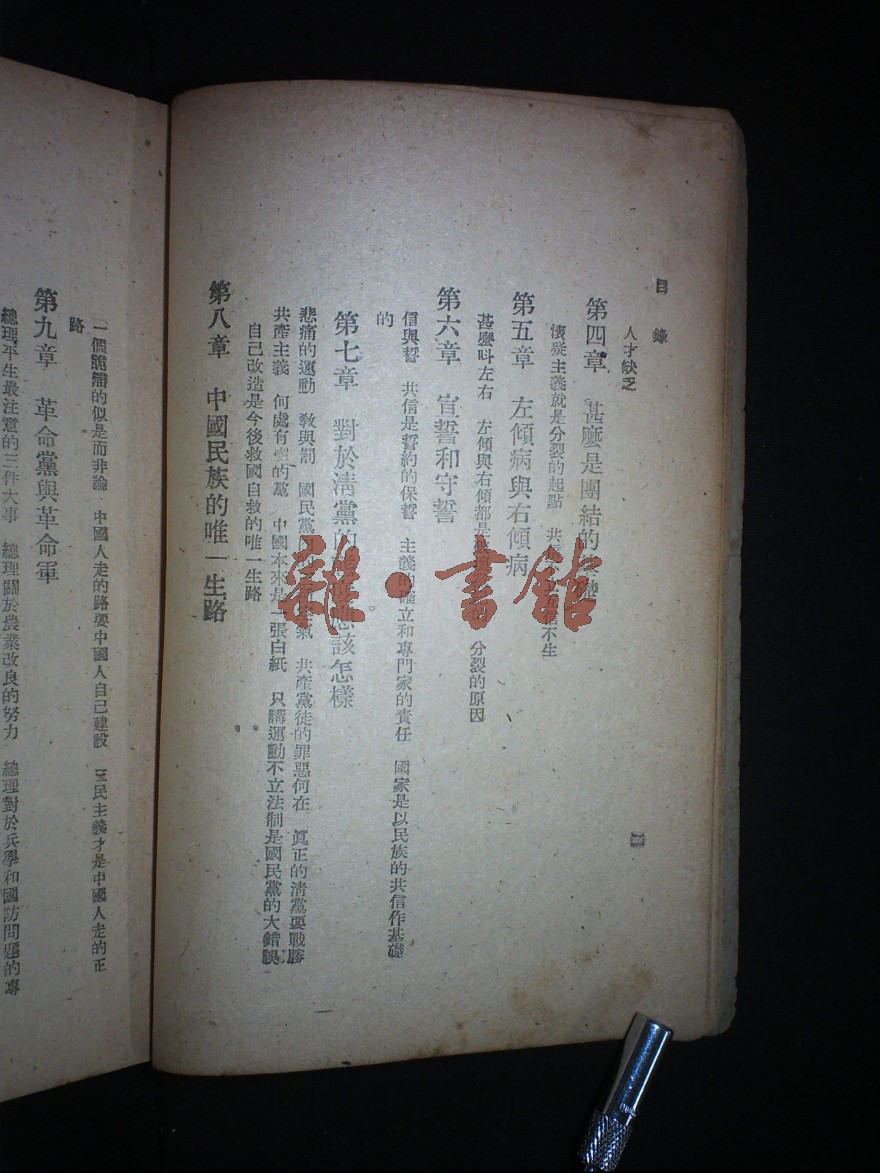 目錄
人才缺乏
第四章 甚麼是團結的
懷疑主義就是分裂的起點 共 信不生
第五章 左傾病與右傾病
甚麼叫左右 左傾與右傾都是 分裂的原因
第六章 宣誓和守誓
信與誓 共信是誓約的保證 主義的確立和專門家的責任 國家是以民族的共信作基礎
的
第七章 對於淸黨的 應該怎樣
悲痛的運動 敎與罰 國民黨 氣 共產黨徒的罪惡何在 眞正的淸黨要戰勝
共產主義 何處有 的黨 中國本來是一張白紙 只講運動不立法制是國民黨的大錯誤
自己改造是今後救國自救的唯一生路
第八章 中國民族的唯一生路
一個詭辯的似是而非論 中國人走的路要中國人自己建設 三民主義才是中國人走的正
路
第九章 革命黨與革命軍
總理平生最注意的三件大事 總理關於農業改良的努力 總理對於兵學和國防問題的專
雜·書館